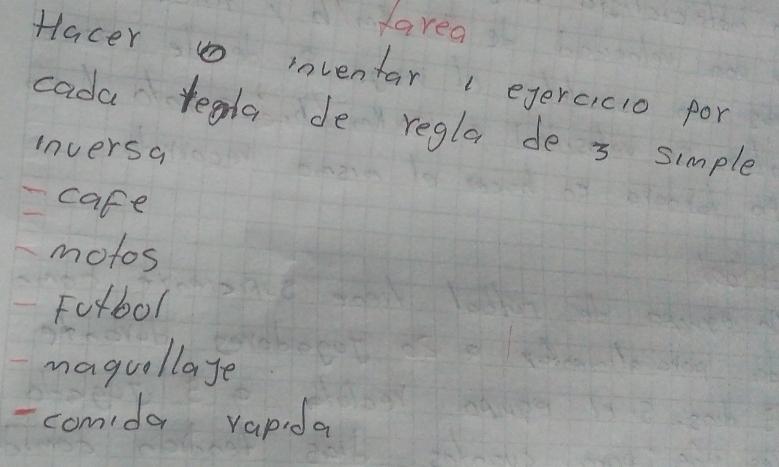 tarea
Hacer o inventar 1 ejercicio por
cada regla de regla de 3 simple
inversa
- cafe
- motos
- Futbol
- maquillaje
- comida rapida